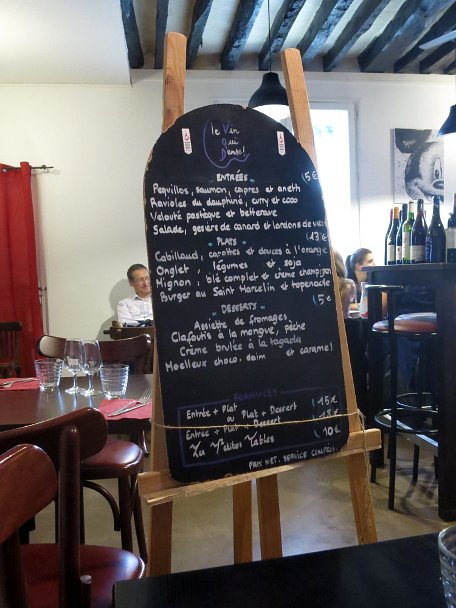 le Vin
Qui
Danse!
ENTRÉES 5€
Pequillos, saumon, capres et aneth
Ravioles du dauphiné, curry et coco
Velouté pastèque et betterave
Salade, gesiers de canard et lardons de
PLATS 13€
Cabillaud, carottes et douces à l'orange
Onglet, légumes et soja
Mignon, blé complet et crème champignon
Burger au Saint Marcelin et tapenade
DESSERTS 5€
Assiette de fromages
Clafoutis à la mangue, pêche
Crème brulée à la tagada
Moelleux choco. daim et caramel
FORMULES
Entrée + Plat ou Plat + Dessert 15€
Entrée + Plat + Dessert 18€
Les P'tites Tables 10€
PRIX NET. SERVICE COMPRIS.